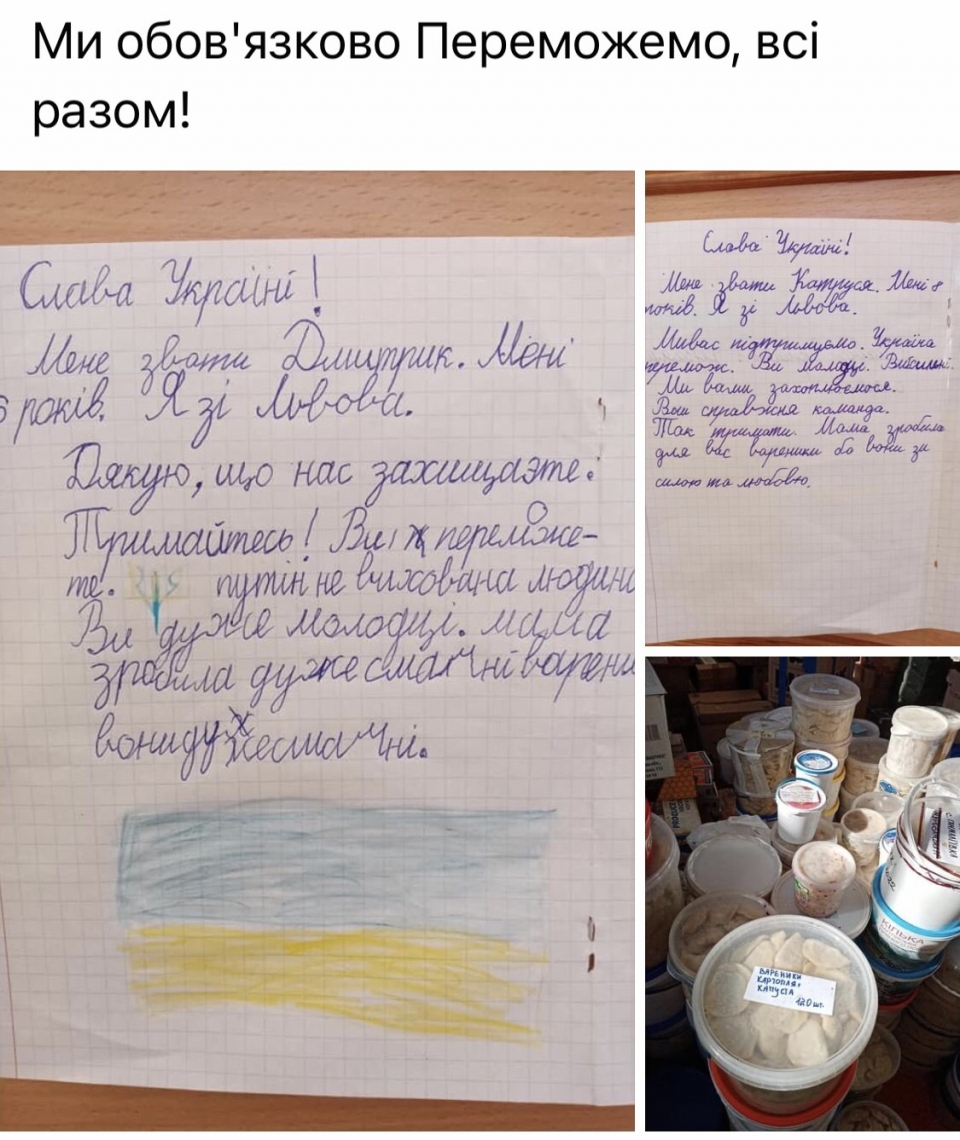 Ми обов'язково Переможемо, всі
разом!
Слава Україні!
Мене звати Дмитрик. Мені
6 років. Я зі Львова.
Дякую, що нас захищаэте.
Тримайтесь! Ви переможе-
те. путін не вихована людина
Ви дуже молодці. мама
зробила дуже смачні варени
вони дуже смачні.
Слава Україні!
Мене звати Катруся. Мені 8
років. Я зі Львова.
Ми вас підтримуємо. Україна
перемож. Ви молодці. Ви сильні.
Ми вами захоплюємося.
Ви справжня команда.
Так тримати. Мама зробила
для вас вареники бо вони зи
силою та любовю.
ВАРЕНИКИ
КАРТОПЛЯ+
КАПУСТА
120 шт.
КІЛЬКА